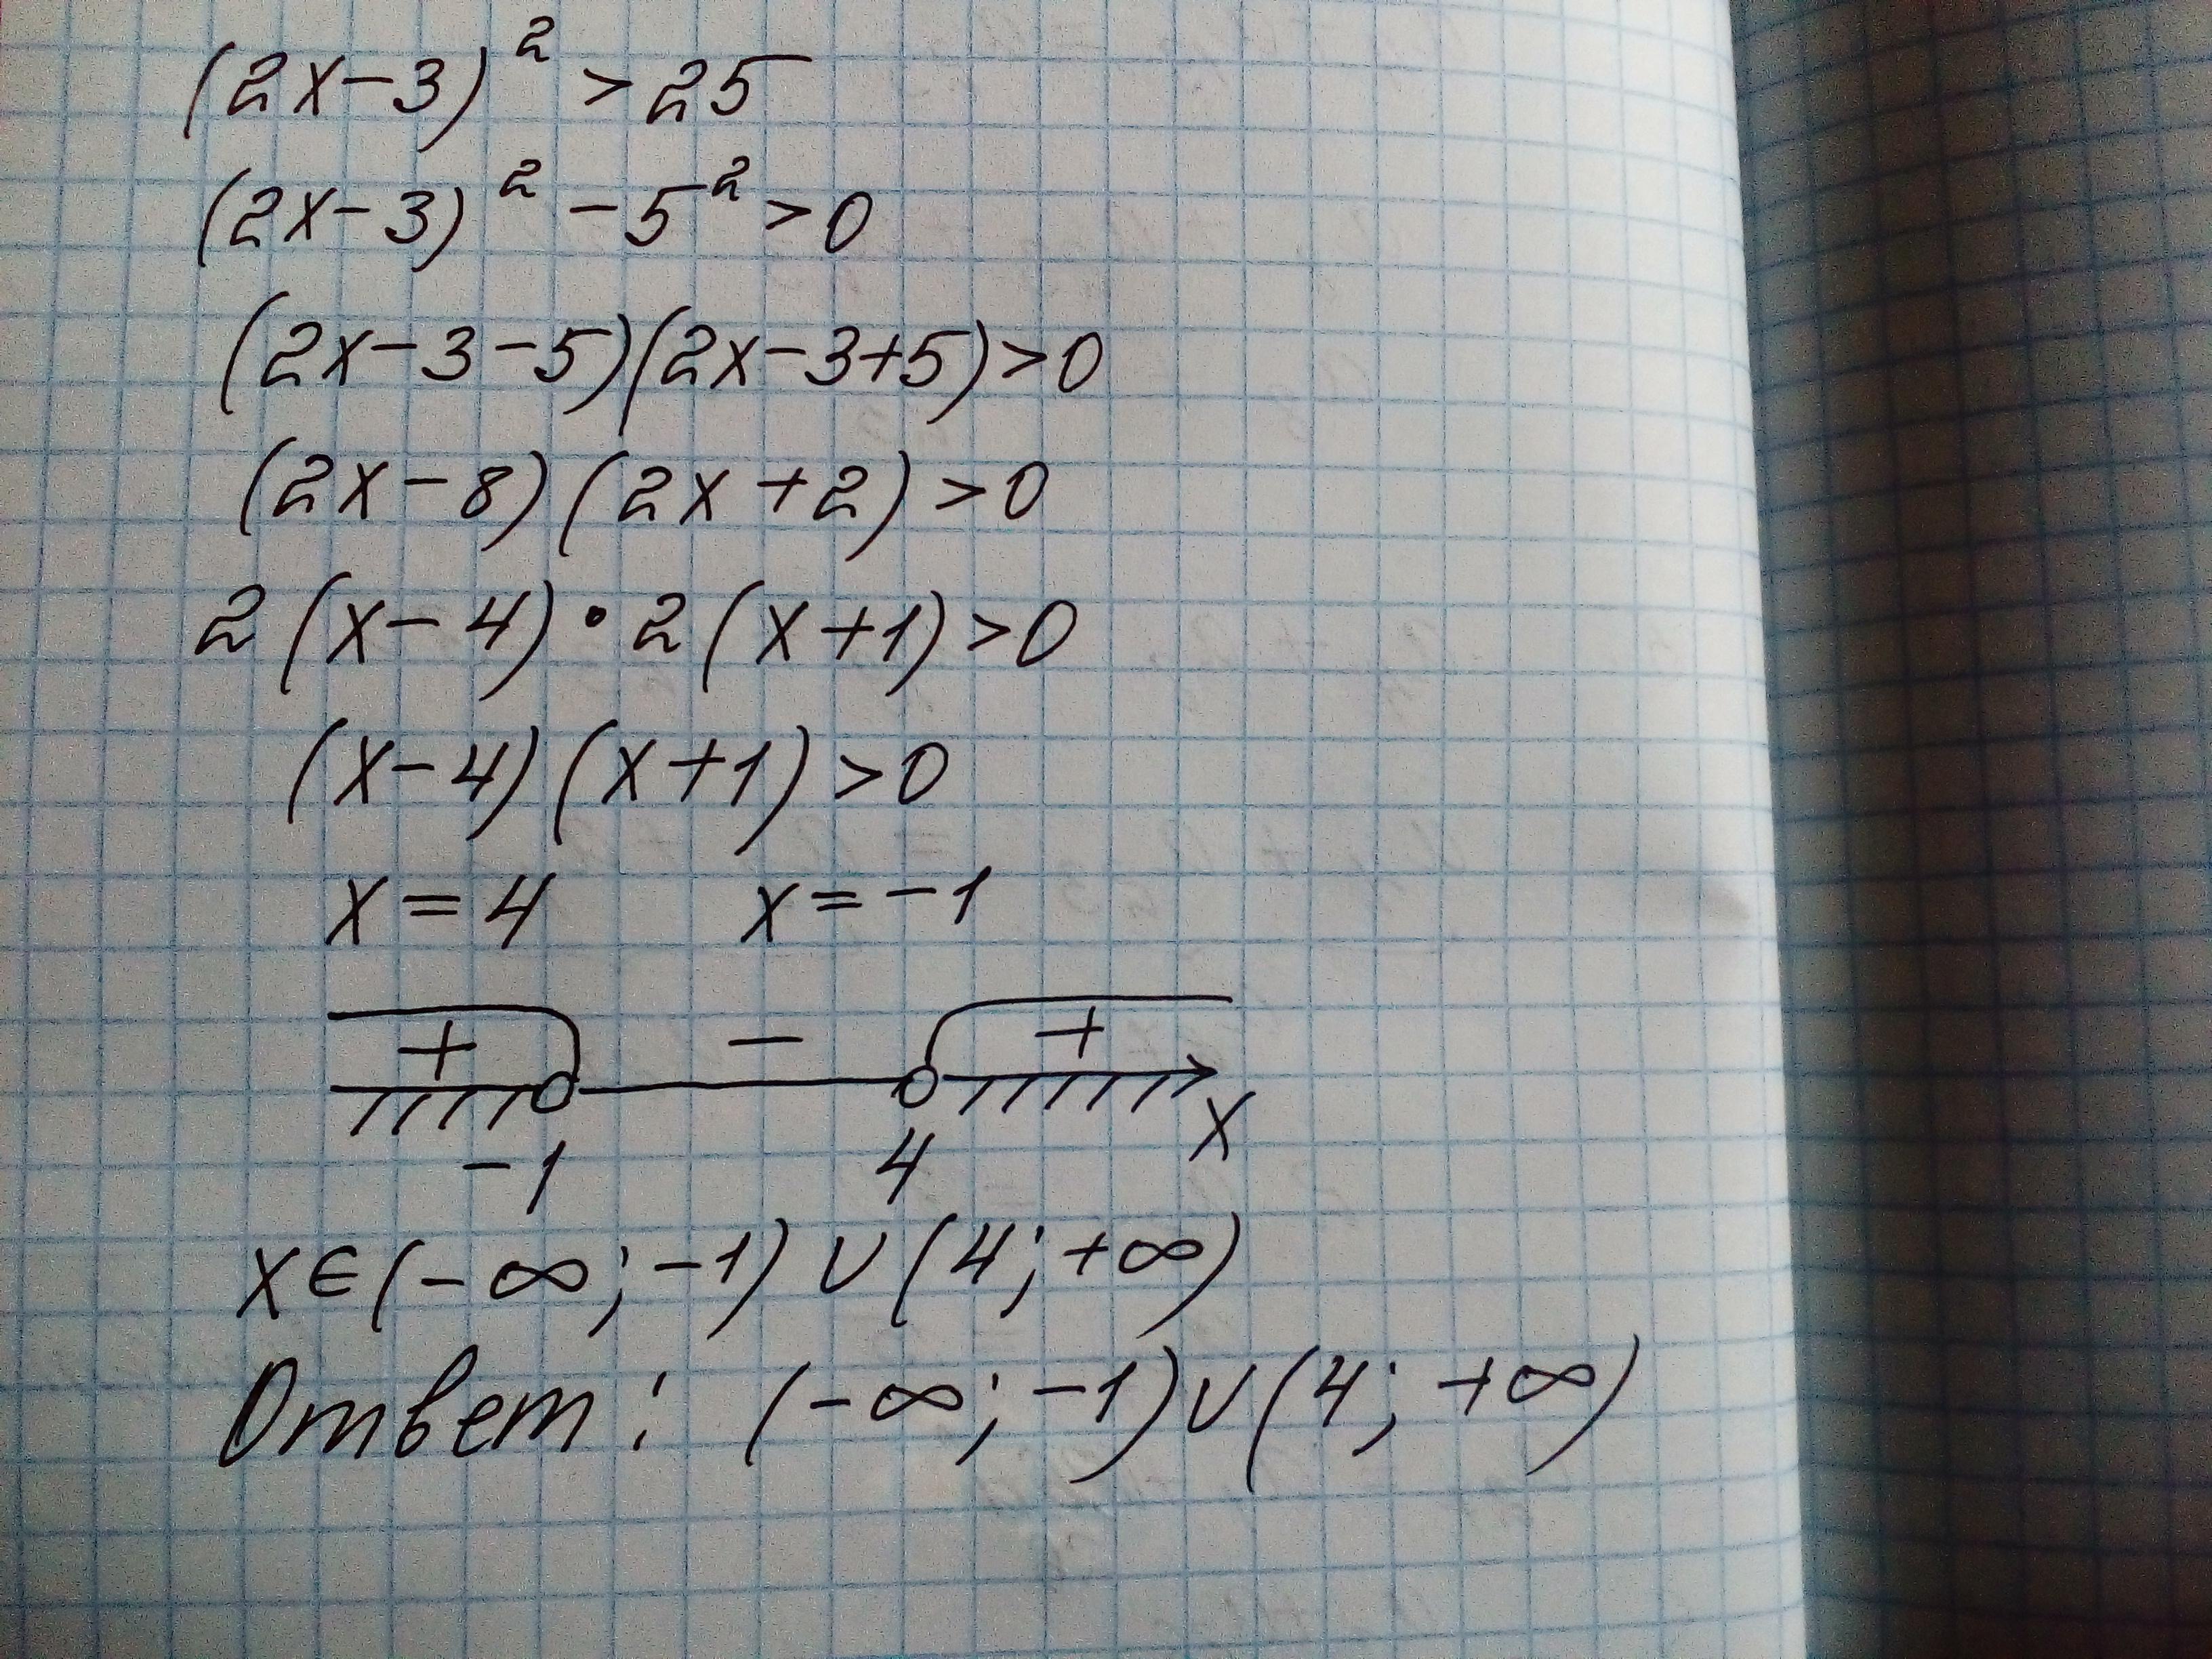 (2x-3)² > 25
(2x-3)² - 5² > 0
(2x-3-5)(2x-3+5)>0
(2x-8)(2x+2)>0
2(x-4)·2(x+1)>0
(x-4)(x+1)>0
x=4 x=-1
+ - +
-1 4 x
x∈(-∞;-1)∪(4;+∞)
Ответ: (-∞;-1)∪(4;+∞)